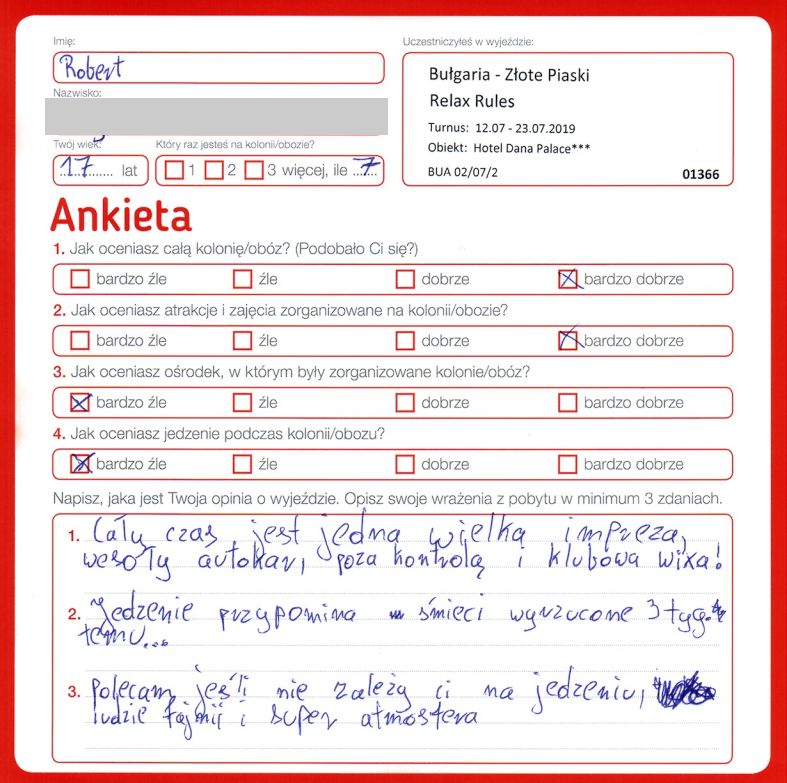 Imię:
Robert
Nazwisko:
Twój wiek:
17 lat
Który raz jesteś na kolonii/obozie?
1 2 3 więcej, ile 7
Uczestniczyłeś w wyjeździe:
Bułgaria - Złote Piaski
Relax Rules
Turnus: 12.07 - 23.07.2019
Obiekt: Hotel Dana Palace***
BUA 02/07/2 01366
Ankieta
1. Jak oceniasz całą kolonię/obóz? (Podobało Ci się?)
bardzo źle źle dobrze bardzo dobrze
2. Jak oceniasz atrakcje i zajęcia zorganizowane na kolonii/obozie?
bardzo źle źle dobrze bardzo dobrze
3. Jak oceniasz ośrodek, w którym były zorganizowane kolonie/obóz?
bardzo źle źle dobrze bardzo dobrze
4. Jak oceniasz jedzenie podczas kolonii/obozu?
bardzo źle źle dobrze bardzo dobrze
Napisz, jaka jest Twoja opinia o wyjeździe. Opisz swoje wrażenia z pobytu w minimum 3 zdaniach.
1. Cały czas jest jedna wielka impreza,
wesoły autokar, poza kontrolą i klubowa wixa!
2. Jedzenie przypomina śmieci wyrzucone 3 tyg.
temu...
3. Polecam jeśli nie zależy ci na jedzeniu,
ludzie fajnii i super atmosfera